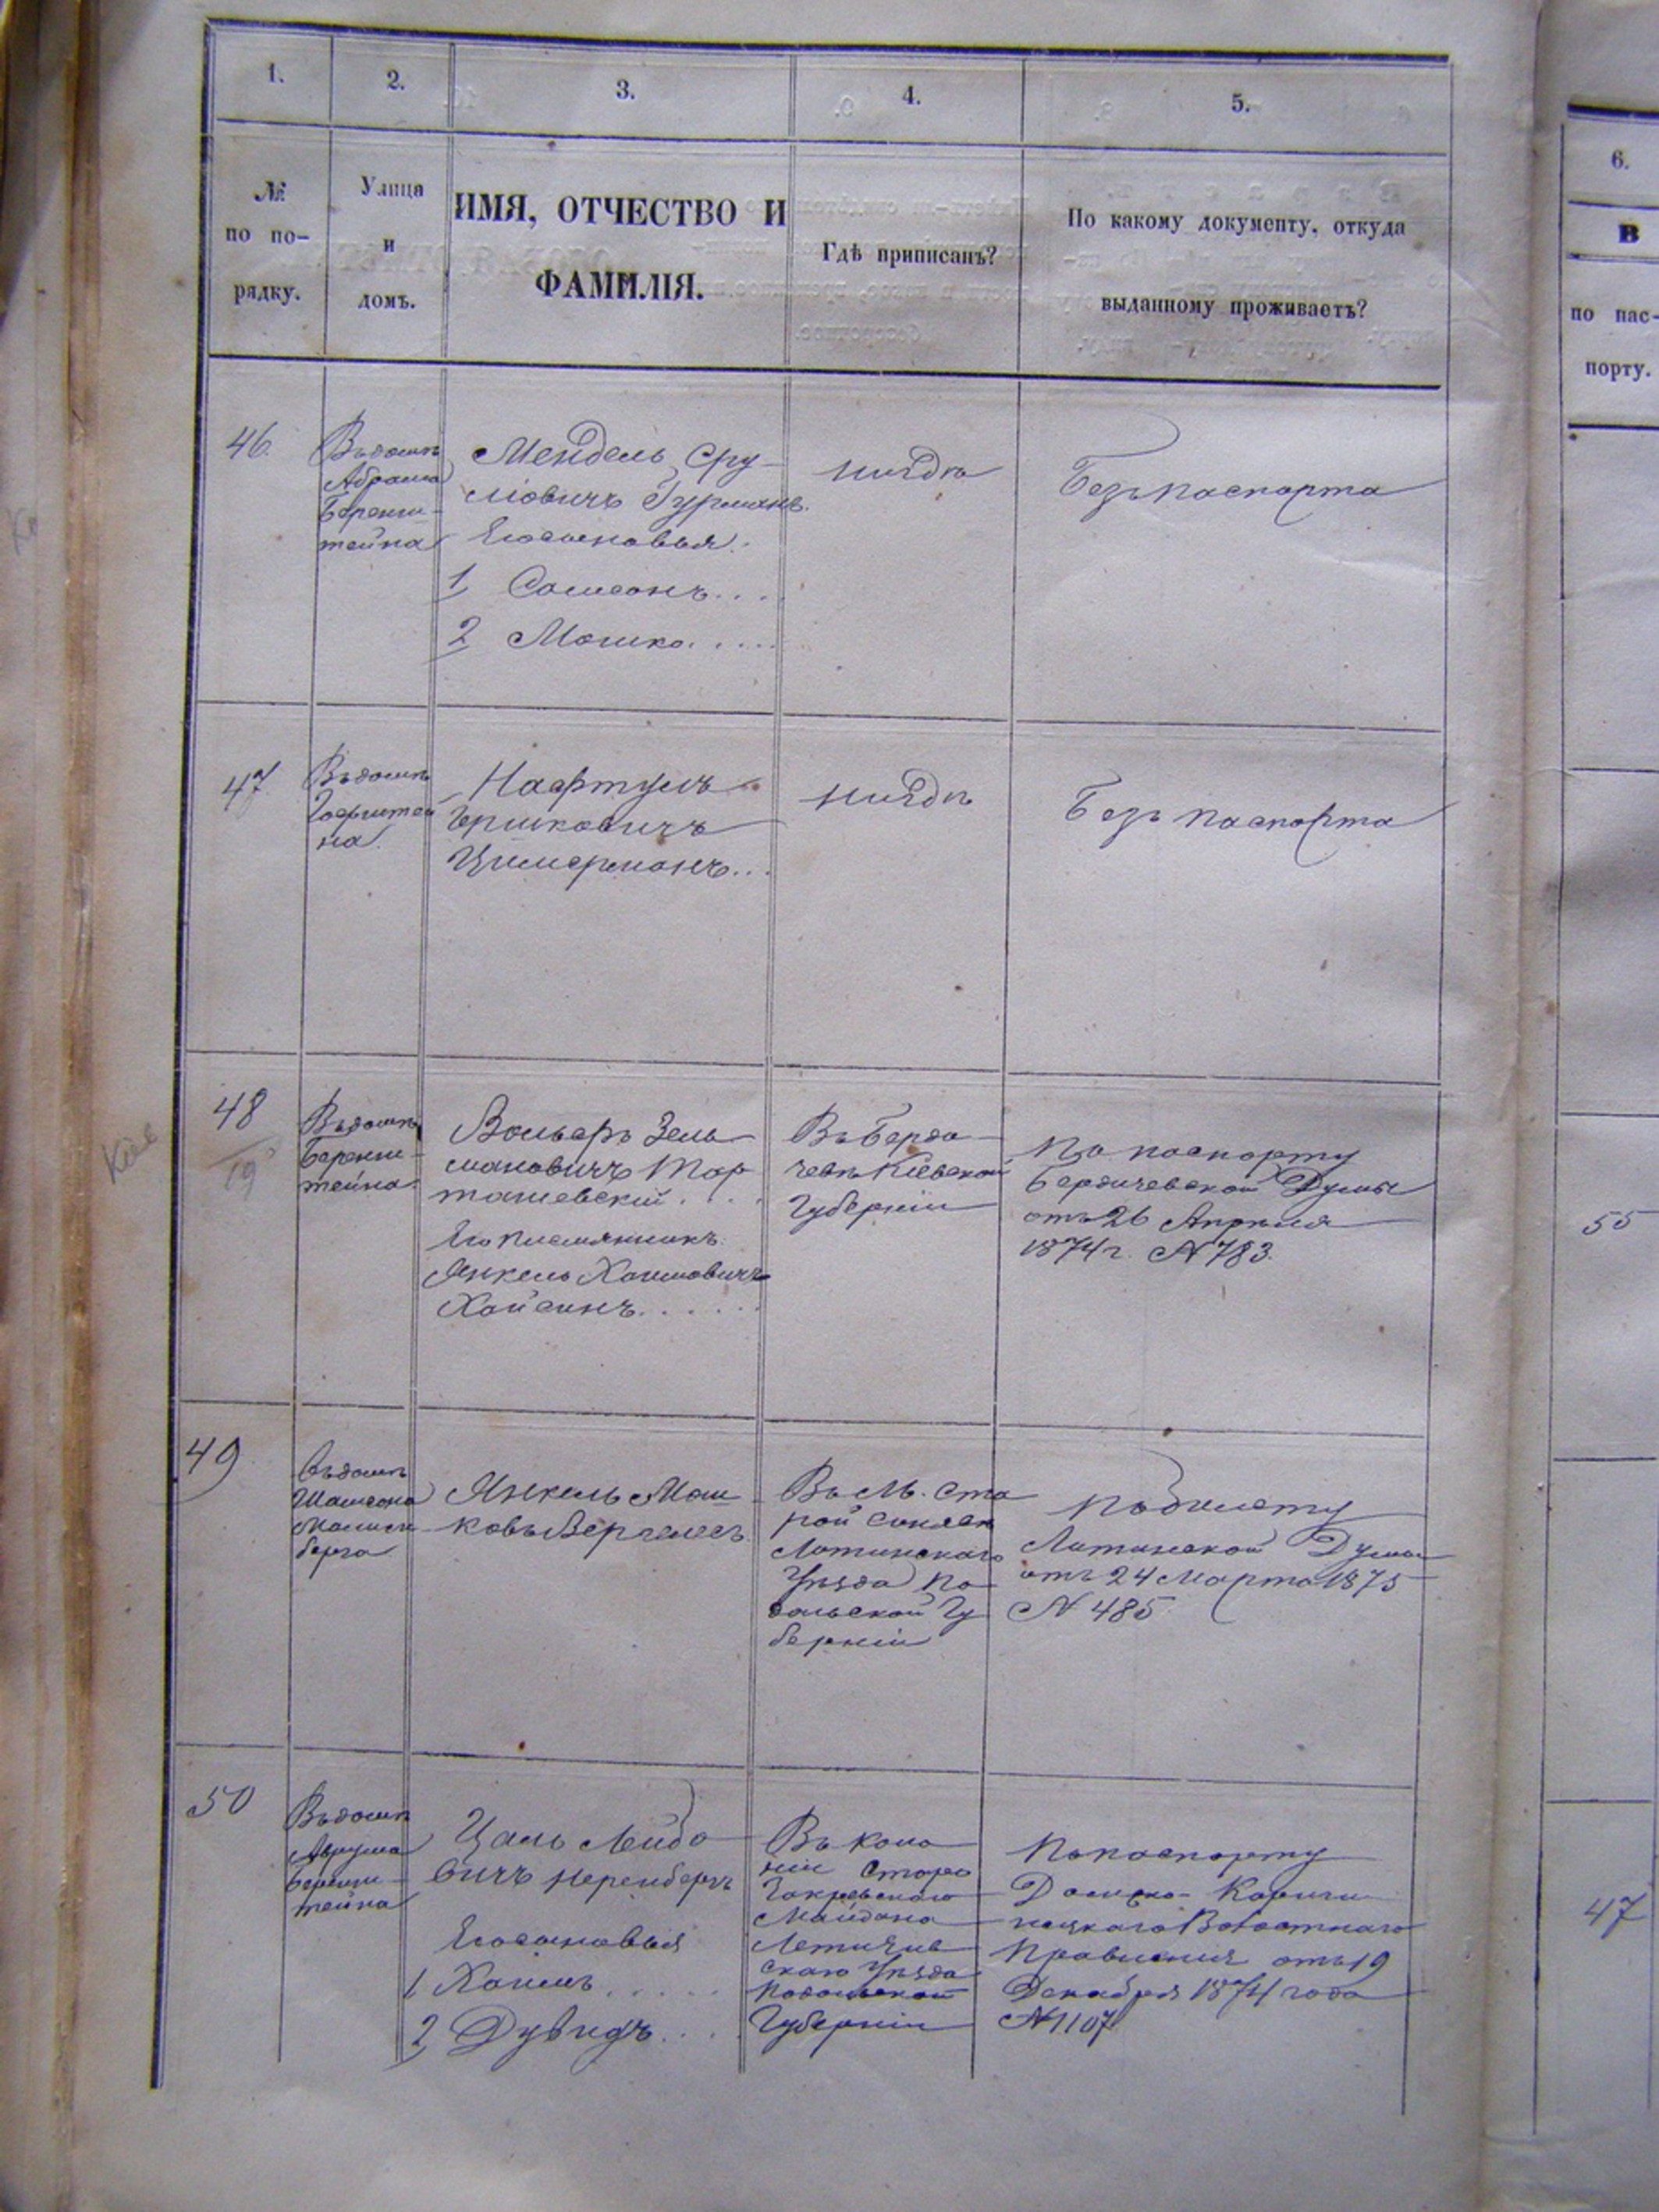 1.
2.
3.
4.
5.
№
по по-
рядку.
Улица
и
домъ.
ИМЯ, ОТЧЕСТВО И
ФАМИЛІЯ.
Гдѣ приписанъ?
По какому документу, откуда
выданному проживаетъ?
6.
В
по пас-
порту.
46
Въ домѣ
Абрама
Беренш-
тейна
Мендель Сру-
ліовичъ Гурманъ.
Его сыновья.
1 Самсонъ....
2 Мошко.....
нигдѣ
Безъ паспорта
47
Въ домѣ
Гоф
на.
Нафтулъ
Гершковичъ
Цимерманъ...
нигдѣ
Безъ паспорта
48
19
Въ домѣ
Беренш-
тейна.
Вольфъ Зель
мановичъ
Его племянникъ.
Янкель Хаимовичъ
Хайсинъ......
Въ Берди-
чевѣ Кіевской
Губерніи
По паспорту
Бердичевской Думы
отъ 26 Апрѣля
1874 г. № 783.
49
Въ домѣ
Шамсона
берга
Янкель Мош-
ковъ Вергелесъ
Въ М. Ста
рой Синяв
Уѣзда По-
дольской Гу
берніи
По билету
Думы
отъ 24 Марта 1875
№ 485
50
Въ домѣ
Аврума
Беренш-
тейна
Цаль Лейбо-
вичъ Неренбергъ
Его сыновья
1 Хаимъ.....
2 Дувидъ....
Въ коло
ніи Старо
Закревскаго
Майдана
Летичев
скаго Уѣзда
Подольской
Губерніи
По паспорту
Волостнаго
Правленія отъ 19
Декабря 1874 года
№ 1107
55
47